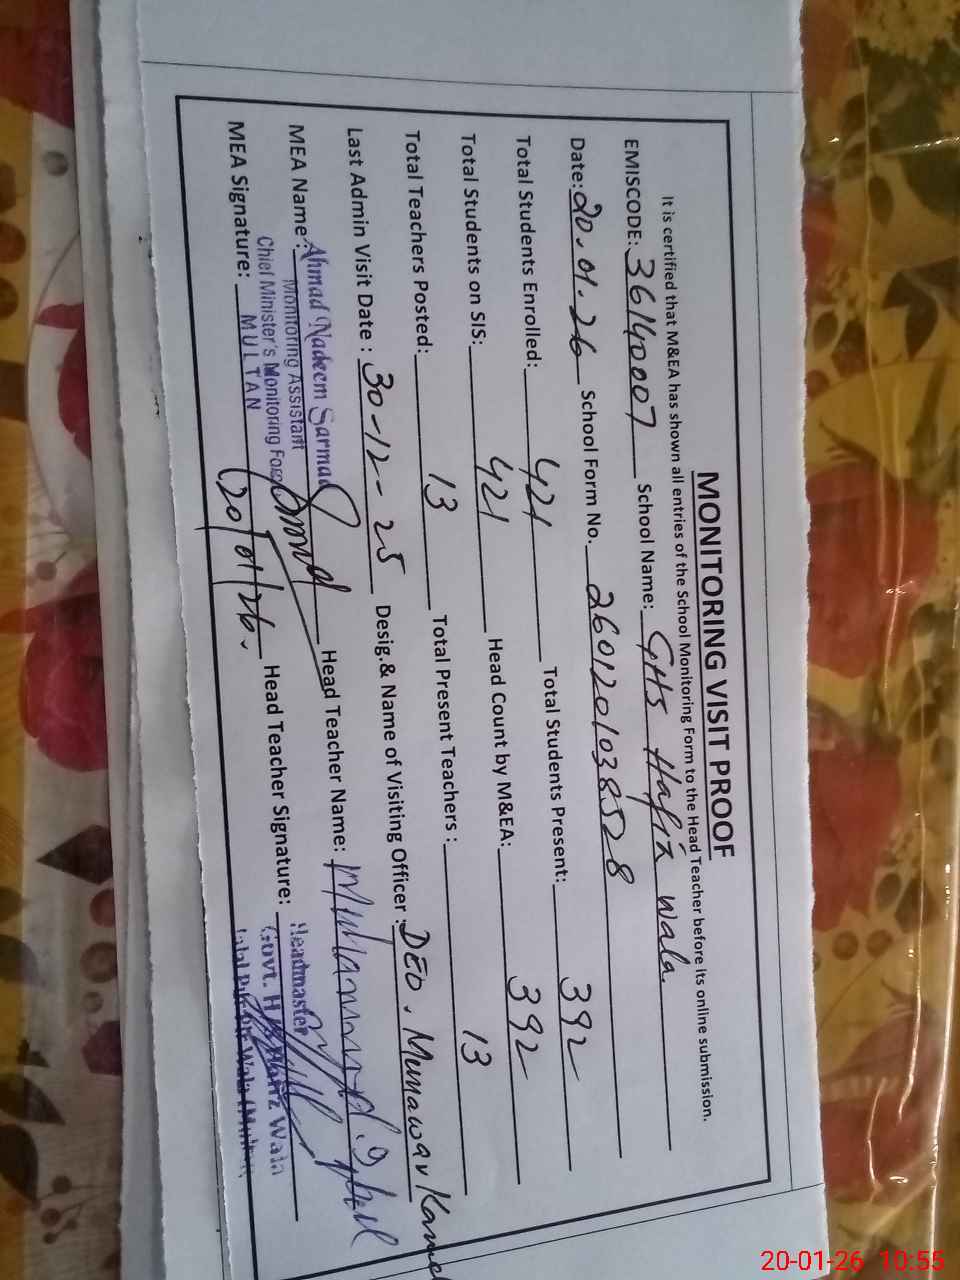 MONITORING VISIT PROOF
It is certified that M&EA has shown all entries of the School Monitoring Form to the Head Teacher before its online submission.
EMISCODE: 36140007 School Name: GHS Hafiz wala.
Date: 20.01.26 School Form No. 2601201038528
Total Students Enrolled: 421 Total Students Present: 392
Total Students on SIS: 421 Head Count by M&EA: 392
Total Teachers Posted: 13 Total Present Teachers : 13
Last Admin Visit Date : 30-12-25 Desig.& Name of Visiting Officer : DEO. Munawar Kamal
MEA Name: Ahmad Nadeem Sarmad Head Teacher Name: Muhammad Iqbal
Monitoring Assistant
Chief Minister's Monitoring Force
MULTAN
MEA Signature: (20/01/26. Head Teacher Signature:
Headmaster
Govt. H Hafiz Wala
Jalal Pur Wala (Multan
20-01-26 10:55